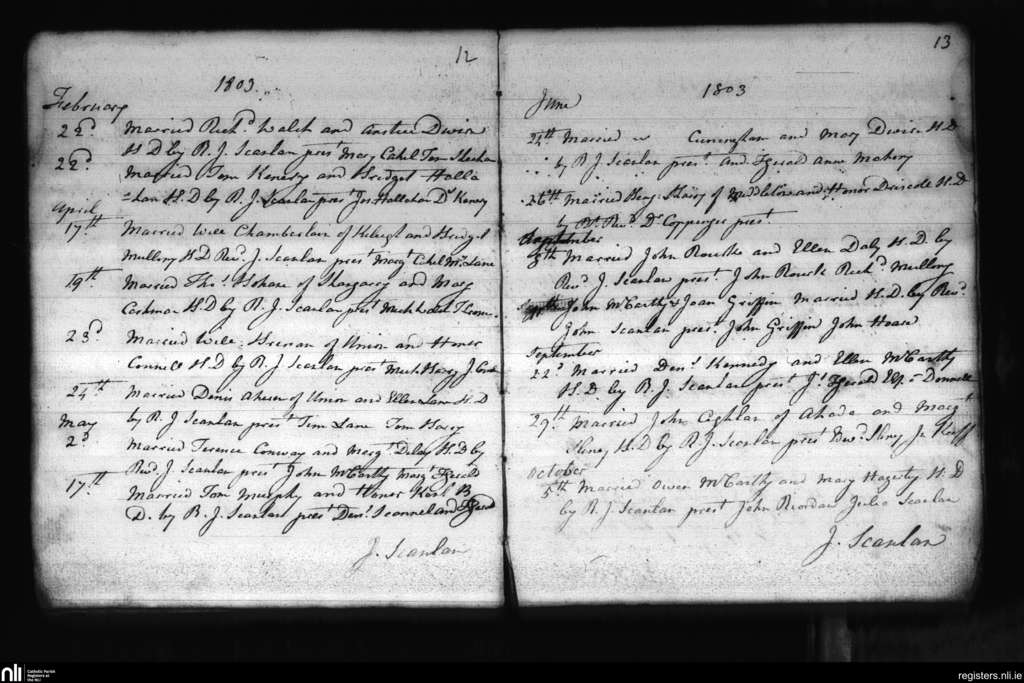 12
1803
February
22d Married Richd. Walsh and Devin
H D by R. J. Scanlan prest. Mary Cahil Tom Sheehan
22d Married Tom Kenery and Bridget Halla
=han H. D by R. J. Scanlan prest. Jas Hallahan Dl. Kenery
April
17th Married Will Chamberlain of and Bridget
Mullony H D Revd. J. Scanlan prest. Margt. Cahel Mr. Lane
19th Married Thos. Hoare of Shangarry and Mary
Cashman H. D by R. J. Scanlan prest.
23d Married Will: Brenan of Union and Honor
H D by R J. Scanlan prest. J.
24th Married Denis Ahern of Union and Ellen Lane H. D
by R. J Scanlan prest. Tim Lane Tom
May
2d Married Terence Conway and Margt. Daley H. D by
Revd. J. Scanlan prest. John McCarthy Margt. Fgerald
17th Married Tom Murphy and Honor
D. by R. J. Scanlan prest. Denl. and
J. Scanlan
13
1803
June
24th Married Cuningham and Mary Devin H. D
by R J Scanlan prest. And. Fgerald Ann Mahony
26th Married Henry of Middleton and Honor Driscole H. D
by Rt. Revd. Dr. Coppenger prest.
September
8th Married John Rourke and Ellen Daly H. D. by
Revd. J. Scanlan prest. John Rourke Richd. Mullony
John McCarthy & Joan Griffin Married H. D. by Revd.
John Scanlan prest. John Griffin John Hoare
September
22d Married Denl. Kennedy and Ellen McCarthy
H. D. by R. J. Scanlan prest. Js. Fgerald
29th Married John Coghlan of Ahada and Margt.
Sliney H. D by R. J. Scanlan prest. Edwd. Sliney
October
5th Married Owen McCarthy and Mary Hagerty H. D
by R. J. Scanlan prest. John Riordan Julia Scanlan
J. Scanlan
nli
Catholic Parish
Registers at
the NLI
registers.nli.ie